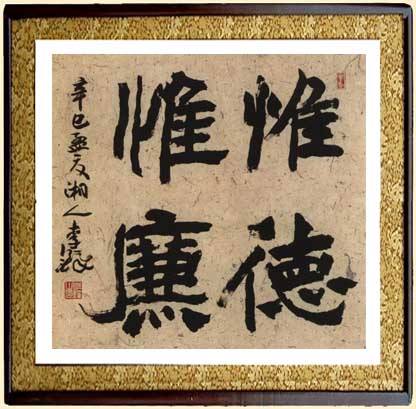 惟德
惟廉
辛巳孟夏湘人李